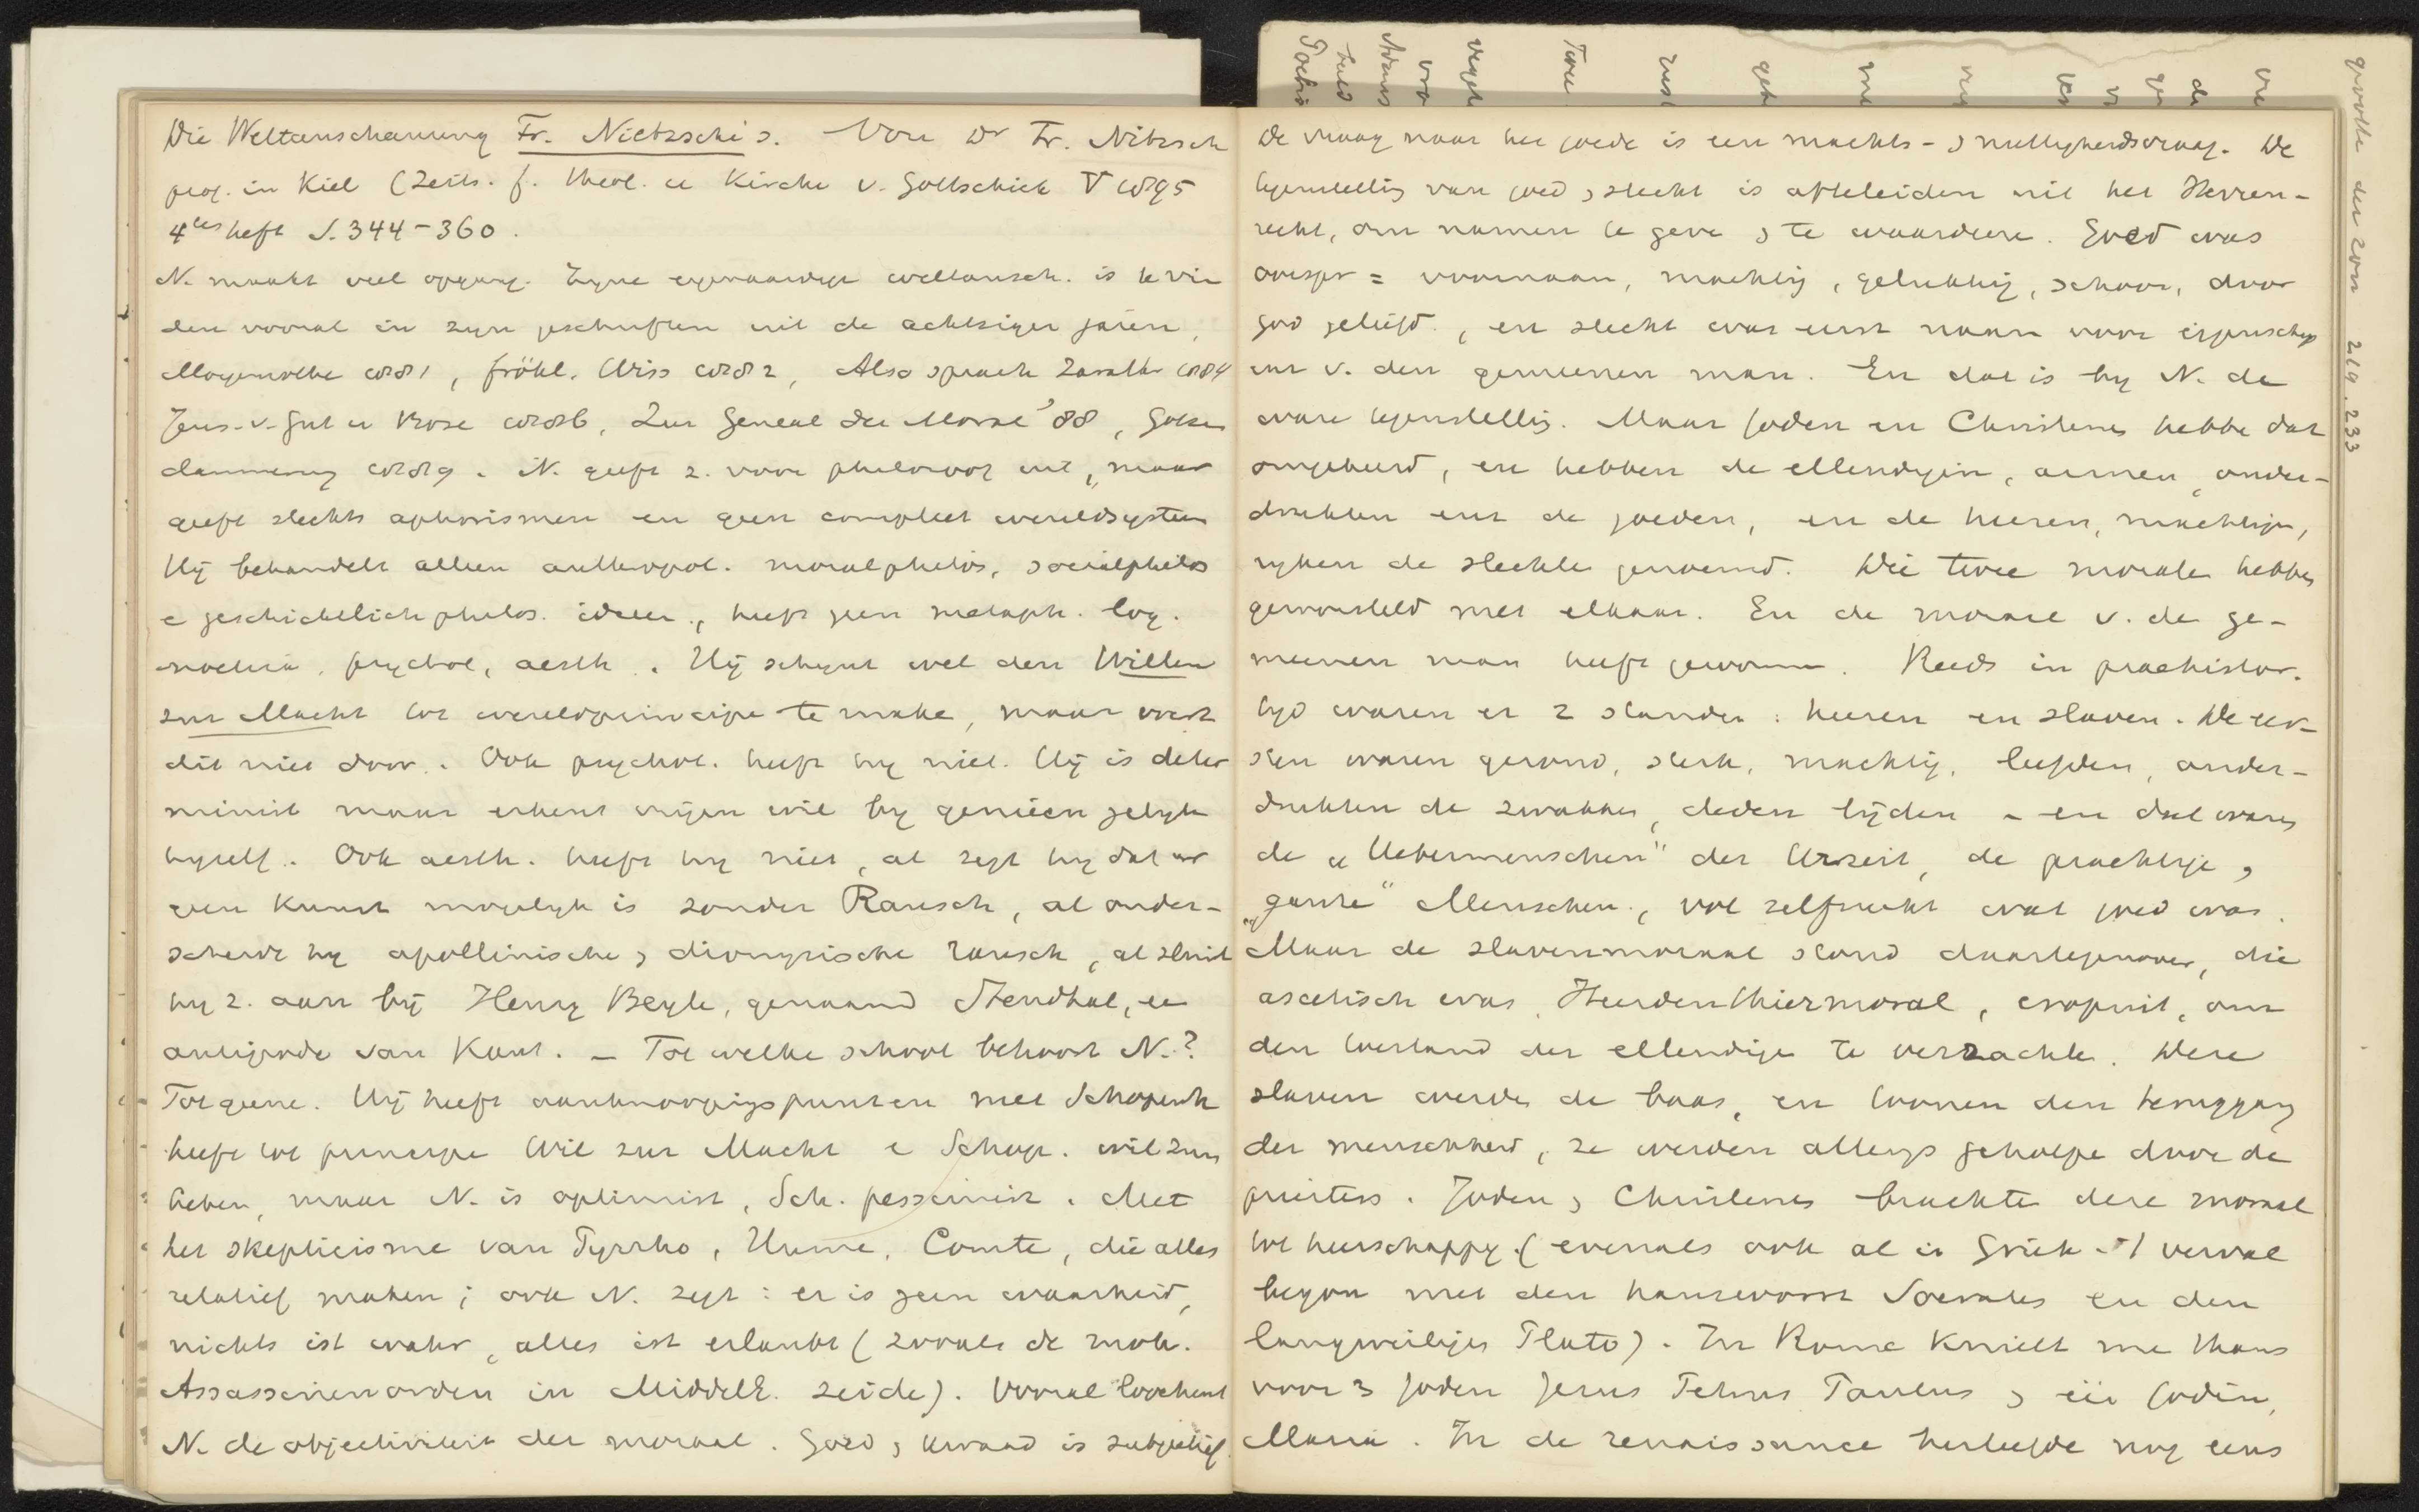 Die Weltanschauung Fr. Nietzsche's. Von Dr Fr. Nitzsch
prof. in Kiel (Zeits. f. theol. u Kirche v. Gottschick V 1895
4tes heft S. 344-360.
N. maakt veel opgang. Zijne eigenaardige weltansch. is te vin
den vooral in zijn geschriften uit de achtziger jaren,
Morgenröthe 1881, fröhl. Wiss 1882, Also sprach Zarath 1884
Jens. v. Gut u Böse 1886, Zur Geneal der Moral '88, Götzen
dämmerung 1889. N. geeft z. voor philosoof uit, maar
geeft slechts aphorismen en geen compleet wereldsysteem
Hij behandelt alleen anthropol. moralphilos, socialphilos
e geschichtlich philos. ideeen, heeft geen metaph. log.
noetica, psychol, aesth. Hij schijnt wel den Willen
zur Macht tot wereldprincipe te make, maar voert
dit niet door. Ook psychol. heeft hij niet. Hij is deter
minist maar erkent vrijen wil bij genieën gelijk
hijzelf. Ook aesth. heeft hij niet, al zegt hij dat er
geen Kunst mogelijk is zonder Rausch, al onder-
scheidt hij apollinische , dionysische rausch, al sluit
hij z. aan bij Henry Beyle, genaamd Stendhal, een
antipode van Kant. - Tot welke school behoort N.?
Tot geene. Hij heeft aanknoopingspunten met Schopenh
heeft tot principe Wil zur Macht e Schop. wil zum
Leben, maar N. is optimist, Sch. pessimist. Met
het skepticisme van Pyrrho, Hume, Comte, die alles
relatief maken; ook N. zegt: er is geen waarheid,
nichts ist wahr, alles ist erlaubt (zooals de moh.
Assassinenorden in MiddelE. zeide). Vooral loochent
N. de objectiviteit der moraal. Goed , kwaad is subjectief.
De vraag naar het goede is een machts- , nuttigheidsvraag. De
tegenstelling van goed , slecht is afteleiden uit het Herren-
recht, om namen te geve , te waardeere. Goed was
oorspr = voornaam, machtig, gelukkig, schoon, door
god geliefd, en slecht was eerst naam voor eigenschap
en v. den gemeenen man. En dat is bij N. de
ware tegenstelling. Maar Joden en Christenen hebbe dat
omgekeerd, en hebben de ellendigen, armen, onder-
drukten enz de goeden, en de heeren, machtige,
rijken de slechte genoemd. Die twee morale hebben
geworsteld met elkaar. En de moraal v. de ge-
meenen man heeft gewonnen. Reeds in praehistor.
tijd waren er 2 standen: heeren en slaven. De eer-
sten waren gezond, sterk, machtig, leefden, onder-
drukten de zwakken, deden lijden - en dat waren
de „Uebermenschen" der Urzeit, de prachtige ,
„ganze" Menschen, vol zelfzucht wat goed was.
Maar de slavenmoraal stond daartegenover, die
ascetisch was, Heerdenthiermoral, eropuit, om
den toestand der ellendige te verzachte. Deze
slaven werde de baas, en toonen den teruggang
der menschheid, ze werden allengs geholpe door de
priesters. Joden , Christenen brachte deze moraal
tot heerschappij (evenals ook al in Griek 't verval
begon met den hansworst Socrates en den
langweiligen Plato). In Rome knielt me thans
voor 3 joden Jezus Petrus Paulus , één Jodin,
Maria. In de renaissance herleefde nog eens
quotte der zon 219.233